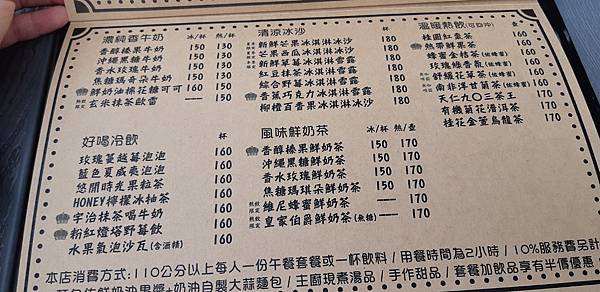 濃純香牛奶 冰/杯 熱/杯
香醇榛果牛奶 150 130
沖繩黑糖牛奶 150 130
香水玫瑰牛奶 150 130
焦糖瑪奇朵牛奶 150 130
鮮奶油棉花糖可可 160 150
熱飲限定 玄米抹茶歐蕾 —— 150
清涼冰沙 杯
新鮮芒果冰淇淋冰沙 180
芒果西瓜冰淇淋冰沙 180
新鮮草莓冰淇淋雪露 180
紅豆抹茶冰淇淋雪露 180
綜合野莓冰淇淋雪露 180
香蕉巧克力冰淇淋雪露 180
柳橙百香果冰淇淋冰沙 180
溫暖熱飲(可回沖) 壺
桂圓紅棗茶 160
熱帶鮮果茶 160
蜂蜜金桔茶(佐蜂蜜) 160
玫瑰綠香氣(佐蜂蜜) 160
舒眠花草茶(佐蜂蜜) 160
南非洋甘菊茶(佐蜂蜜) 160
天仁九〇三茶王 160
有機菊花普洱茶 160
桂花金萱烏龍茶 160
好喝冷飲 杯
玫瑰蔓越莓泡泡 160
藍色夏威夷泡泡 160
悠閒時光果粒茶 160
HONEY檸檬冰柚茶 160
宇治抹茶喝牛奶 160
粉紅燈塔野莓飲 160
水果氣泡沙瓦(含酒精) 160
風味鮮奶茶 冰/杯 熱/壺
香醇榛果鮮奶茶 150 170
沖繩黑糖鮮奶茶 150 170
香水玫瑰鮮奶茶 150 170
焦糖瑪琪朵鮮奶茶 150 170
熱飲限定 維尼蜂蜜鮮奶茶 —— 170
熱飲限定 皇家伯爵鮮奶茶(焦糖) —— 170
本店消費方式:110公分以上每人一份午餐套餐或一杯飲料/用餐時間為2小時/10%服務費另計
鮮奶油果醬+奶油自製大蒜麵包/主廚現煮湯品/手作甜品/套餐加飲品享有半價優惠